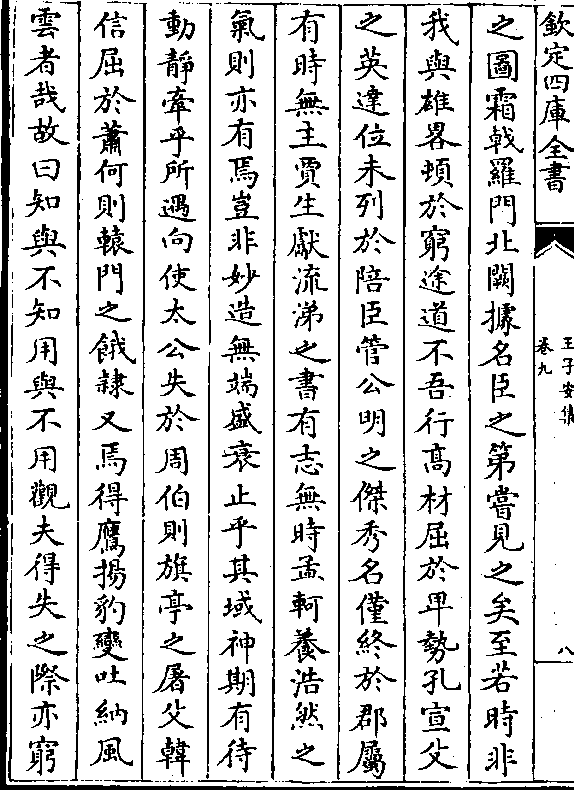 欽定四庫全書
王子安集
卷九
八
之圖霜戟羅門北闕據名臣之第嘗見之矣至若時非
我與雄畧頓於窮途道不吾行高材屈於卑勢孔宣父
之英達位未列於陪臣管公明之傑秀名僅終於郡屬
有時無主賈生獻流涕之書有志無時孟軻養浩然之
氣則亦有焉豈非妙造無端盛衰止乎其域神期有待
動靜牽乎所遇向使太公失於周伯則旗亭之屠父韓
信屈於蕭何則轅門之餓隷又焉得鷹揚豹變吐納風
雲者哉故曰知與不知用與不用觀夫得失之際亦窮